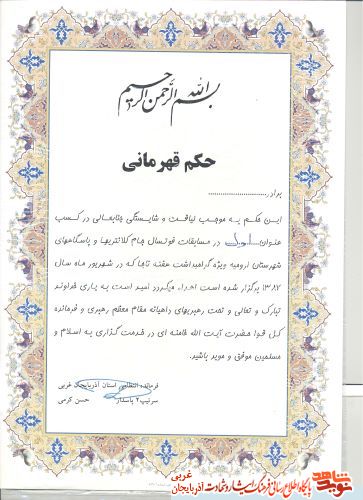 بسم الله الرحمن الرحیم
حکم قهرمانی
برادر ............................
این حکم به موجب لیاقت و شایستگی جنابعالی در کسب
عنوان اول در مسابقات فوتسال جام کلانتریها و پاسگاههای
شهرستان ارومیه ویژه گرامیداشت هفته ناجا که در شهریور ماه سال
۱۳۸۷ برگزار شده است اهداء میگردد امید است به یاری خداوند
تبارک و تعالی و تحت رهبریهای داهیانه مقام معظم رهبری و فرمانده
کل قوا حضرت آیت الله خامنه ای در خدمت گزاری به اسلام و
مسلمین موفق و موید باشید.
فرمانده انتظامی استان آذربایجان غربی
سرتیپ ۲ پاسدار حسن کرمی
نوید شاهد
پایگاه اطلاع رسانی فرهنگ ایثار و شهادت آذربایجان غربی